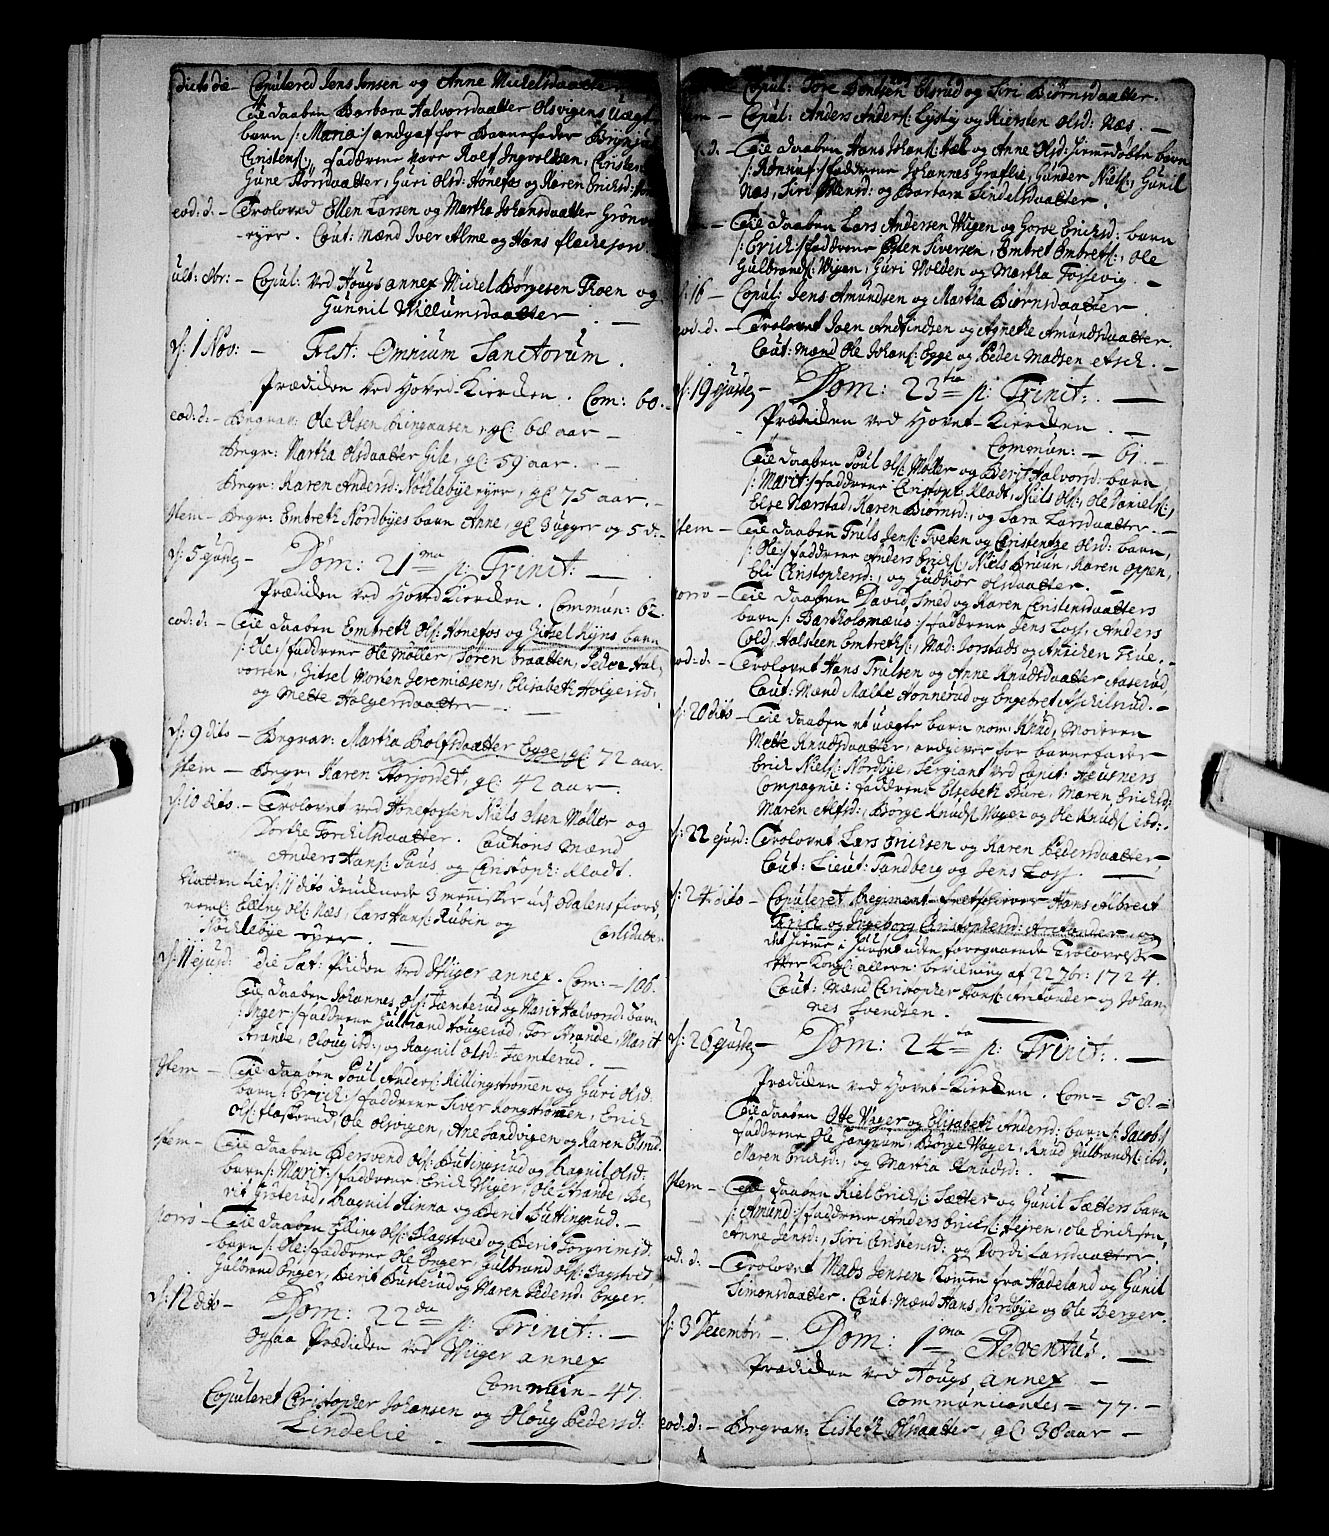 dicto die – Copulered Jens Jensen og Anne Michelsdaatter
Item daaben Barbara Halvorsdaatter Olsvigens Uægte
barn /: Maria :/ andgaf for Barnefader Brynjul
Cristens: faddrene vare Rolf Ingvoldsen, Cristen
Gune Thorsdaatter, Guri Olsd: Hønefos og Karen Erichsd:
eod: d: – Troloved Ellen Larsen og Martha Johansdaatter Grønv
eyer. Caut: Mænd Iver Alme og Hans
ult: 8br: – Copul: ved Hougs annex Michel Børgesen Moen og
Gunnil Willumsdaatter
d: 1 Nov: – Fest: Omnium Sanctorum.
Prædiken ved Hoved-Kircken. Com: 60.
eod: d: – Begrav: Ole Olsen Ringaasen, gl: 68 aar –
Begr: Martha Olsdaatter Lie, gl: 59 aar. –
Begr: Karen Andersd: Nochlebye eyer, gl: 75 aar. –
Item – Begr: Embreth Nordbyes barn Anne, gl: 3 uger og 5 d: –
d: 5 ejusd: – Dom: 21ma p: Trinit: –
Prædiken ved Hoved Kircken. Commun: 62.
eod: d: – Item daaben Embreth Ols: Hønefos og Gitsel Hyns barn
/: Ole :/ faddrene Ole Møller, Søren Braatten, Peder Hal-
vorsen, Gitsel Morten Jeremiæsens, Elisabeth Holgersd:
og Mette Holgersdaatter –
d: 9 dito – Begrav: Martha Rolfsdaatter Egge, gl: 72 aar.
Item – Begr: Karen Storjordet, gl: 42 aar.
d: 10 dito – Trolovet ved Hønefossen Niels Olsen Møller og
Dorthe Torchilsdaatter. Cautions Mænd
Anders Hans: Paus og Cristoph: Kladt.
Natten til d: 11 dito druknede 3 mennisker ud
noml: Elling Ols: Næs, Lars Hans: Rubin og Carlsdatter
Nochlebye eyer –
d: 11 ejusd: die Sat: Prædiken ved Wiger annex. Com: – 106.
Item daaben Johannes Ols: Tæmterud og Marit Halvorsd: barn
/: Inger :/ faddrene Gulbrand Hougerud, Tor Strande, Marit
Strande, Oloug ibd:, og Ragnil Olsd: Tæmterud. –
Item – Item daaben Poul Anders: Killingstrømmen og Guri Olsd:
barn /: Erich :/ faddrene Siver Kongstrømen, Erich
Ols: Flaskerud, Ole Olsvigen, Ane Sandvigen og Karen Elsrud.
Item – Item daaben Bersvend Ols: Butingsrud og Ragnil Olsd:
barn /: Marit :/ faddrene Erich Wager, Ole Strande, Be-
rit Grøterud, Ragnil Rinna og Berit Buttingsrud. –
porro – Item daaben Elling Ols: Flagstved og Berit Torgrimsd:
barn /: Ole :/ faddrene Ole Enger, Gulbrand Ols: Dagstved
Gulbrand Enger, Berit Busterud og Maren Pedersd: Enger.
d: 12 dito – Dom: 22da p: Trinit: –
ogsaa Prædiken ved Wiger annex
Commun – 47.
Copuleret Christopher Johansen og Oloug Pedersd:
Lindelie. –
Copul: Tore Bentsen Elsrud og Siri Biørnsdaatter.
Item – Copul: Anders Anders: Lysty og Kiersten Olsd: Næs. –
d. – Item daaben Hans Johans: og Anne Olsd: hiemmedøbte barn
/: Rønnau :/ faddrene Johannes Graflie, Gunder Niels:, Gunil
Næs, Siri Stensd: og Barbara Sindelsdaatter.
Item daaben Lars Andersen Wigen og Gorve Erichsd: barn
/: Erich :/ faddrene Esten Siversen, Embret Embrets:, Ole
Gulbrands: Wigen, Guri Volden og Martha Fosservig. –
d: 16 – Copul: Jens Amundsen og Martha Biørnsdaatter
eod: d: – Trolovet Joen Andfindsen og Agnethe Amundsdaatter.
Caut: Mænd Ole Johans: Egge og Peder Madsen etsch. –
d: 19 ejusd: – Dom: 23tia p: Trinit: –
Prædiken ved Hovet-Kiercken. –
Commun: – 61. –
Item daaben Poul Ols: Møller og Berit Halvorsd: barn
/: Marit :/ faddrene Cristoph: Kladt, Niels Ols:, Ole Daniels:,
Else Nærstad, Karen Biørnsd:, og Sara Larsdaatter –
Item – Item daaben Truls Jens: Tveten og Cristentze Olsd: barn,
/: Ole :/ faddrene Anders Erichs:, Niels Bruun, Karen Oppen,
Eli Cristophersd:, og Gudbiør Olsdaatter. –
porro – Item daaben David Smed og Karen Cristensdaatters
barn /: Bartholomæus :/ faddrene Jens Loss, Anders
Cold, Halsteen Embreths:, Mad: Jorstads og Anichen True. –
eod: d: – Trolovet Hans Trulsen og Anne Knudsdaatter Aaserud
Caut: Mænd Malte Hønnerud og Engebret Aschilsrud. –
d: 20 dito – Item daaben et uægte barn nom: Knud, Moderen
Mette Knudsdaatter, andgiver for barnefader
Erich Niels: Nordbye, Sergiant ved Capit: Heusners
Compagnie: faddrene Elsebeth Bure, Maren Erichsd:
Maren Alfsd:, Børge Knuds: Wager og Ole Knuds: ibd: –
d: 22 ejusd: Trolovet Lars Erichsen og Karen Pedersdaatter –
Caut: Lieut: Tandberg og Jens Loss. –
d: 24 dito – Copuleret Regiment-Feltskierer Hans Albreit
Frich og Ingeborg Cristophersd: Arctander – og
det hiemme i Huuset uden foregaaende Trolovelse
efter Kongl: allern: bevilning af 22 7br: 1724.
Caut: Mænd Cristopher Hans: Arctander og Johan-
nes Svendsen. –
d: 26 ejusd: – Dom: 24ta p: Trinit: –
Prædiken ved Hovet-Kiercken. Com = 58 =
Item daaben Otte Wager og Elisabeth Andersd: barn /: Jacob :/
faddrene Ole Jonsrum, Børge Wager, Knud Gulbrands: ibd:,
Maren Erichsd:, og Martha Knudsd: –
Item – Item daaben Kiel Erichs: Sætter og Gunil Sætters barn
/: Amund :/ faddrene Anders Erichs: Hejren, Ole Erichsen,
Anne Jensd:, Siri Cristensd: og Dordi Larsdaatter
eod: d: – Trolovet Mads Jensen kommen fra Hadeland og Gunil
Simonsdaatter. Caut: Mænd Hans Nordbye og Ole Berger.
d: 3 Decembr: – Dom: 1ma Adventus. –
Prædiken ved Hougs annex. –
Communicantes = 77. –
eod: d: – Begrav: Lisbeth Olsdaatter, gl: 38 aar –